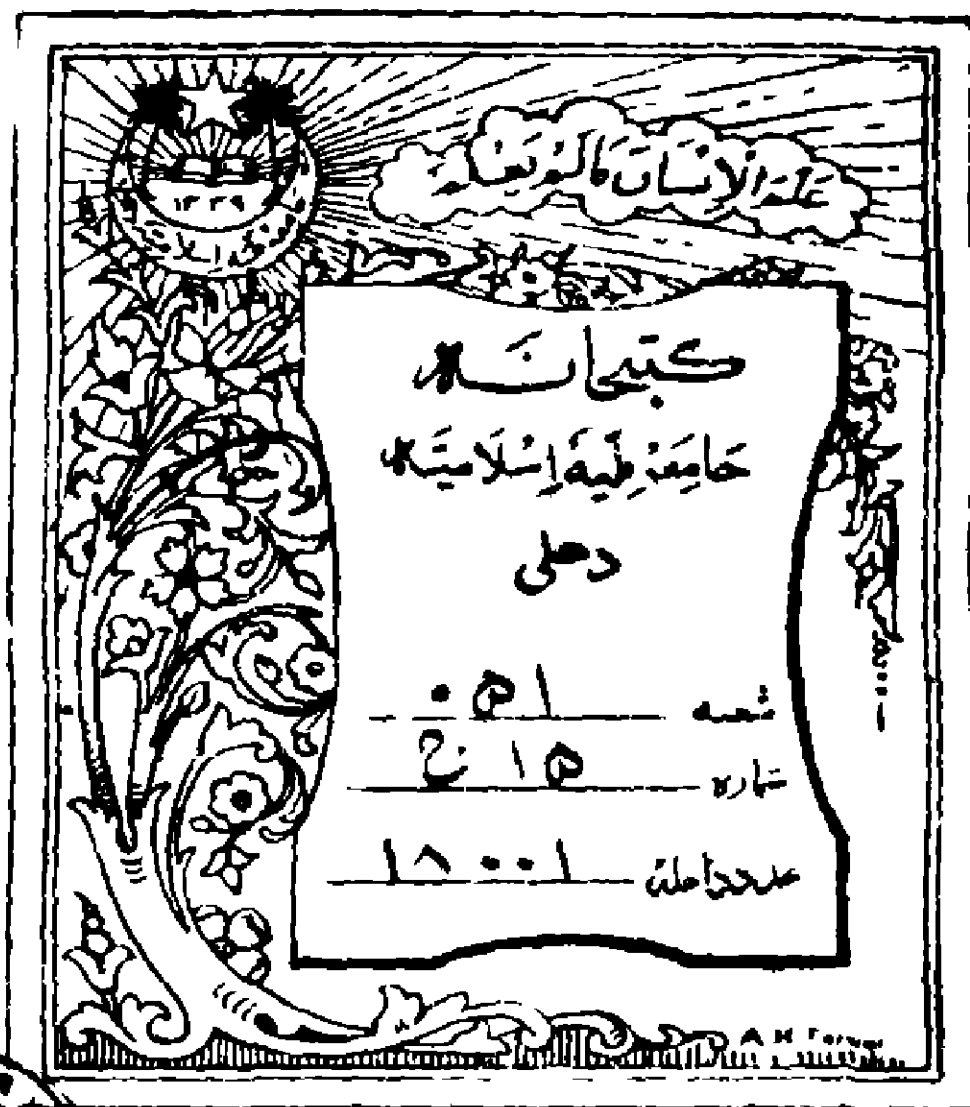 عَلَّمَ الْإِنْسَانَ مَا لَمْ يَعْلَمْ
۱۳۳۹
كتبخانہ
جامعہ ملیہ اسلامیہ
دهلی
شعبہ ۰۵۱
شمارہ ۱۵ ج
عدد داخلہ ۱۸۰۰۱
A H